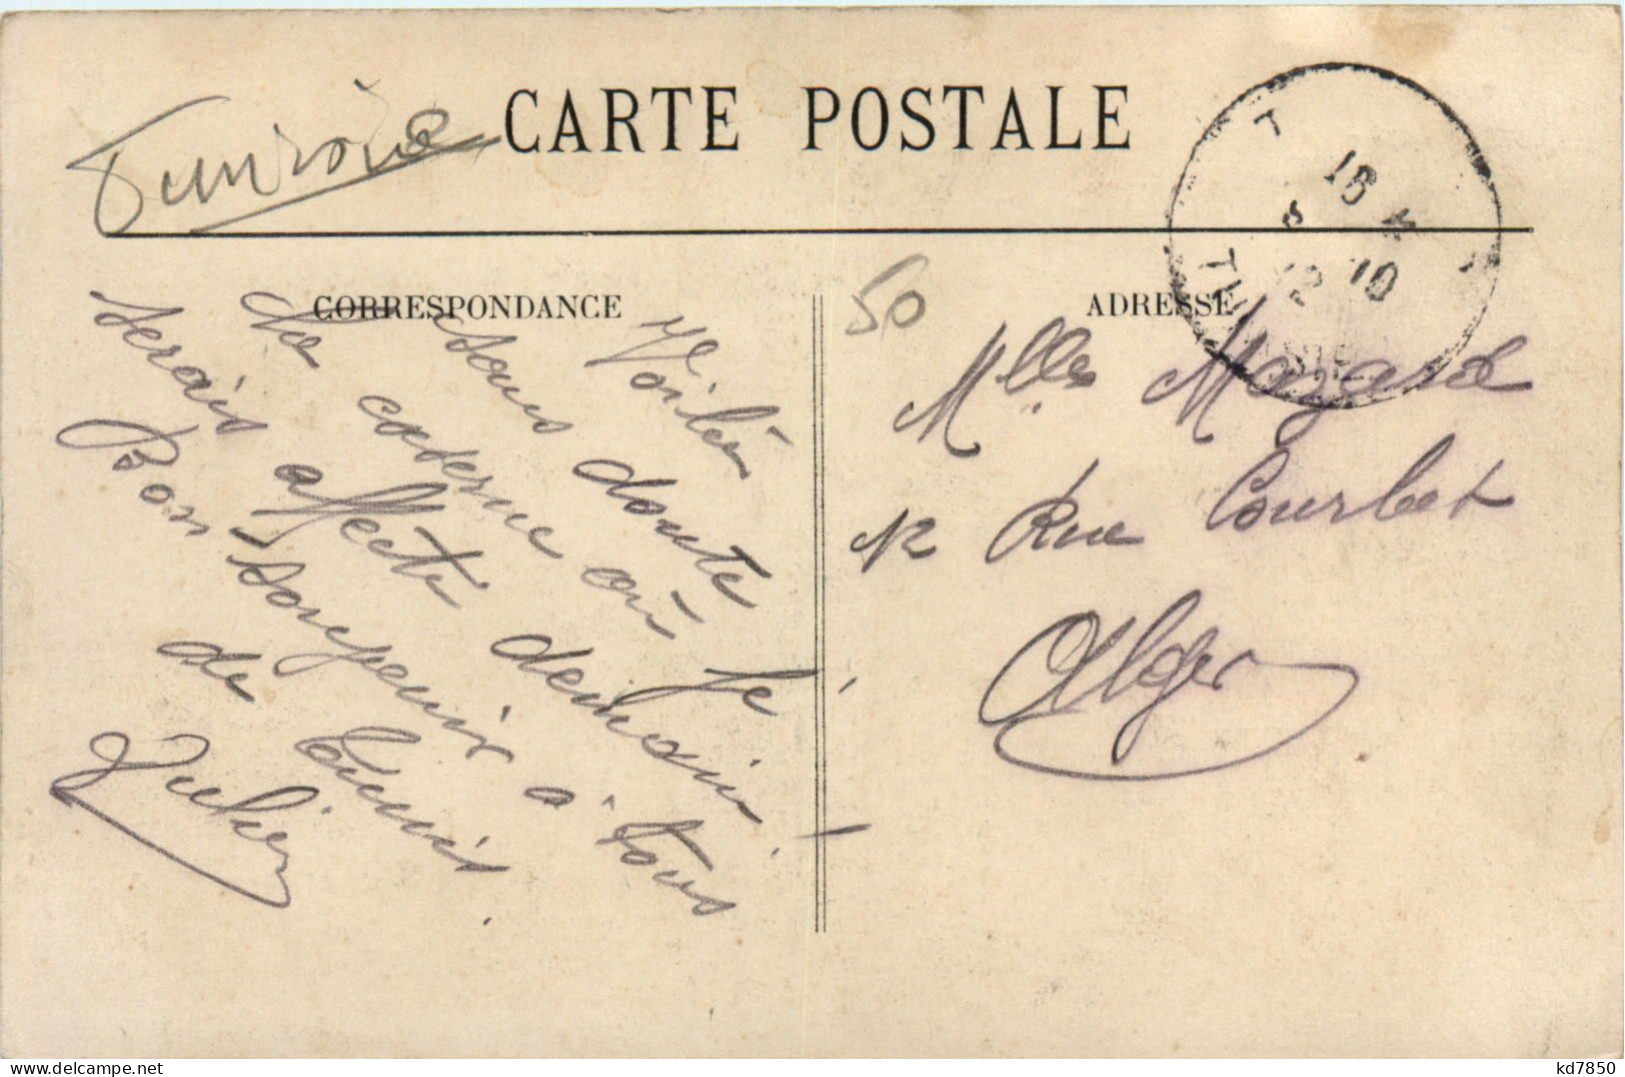 CARTE POSTALE
CORRESPONDANCE
ADRESSE
50
Voilà
sans doute
la caserne où je
serais affecté demain.
Bon souvenir à tous
de Tunis.
Julien
Mlles Mozard
12 Rue Courbet
Alger
T
18
10
kd7850